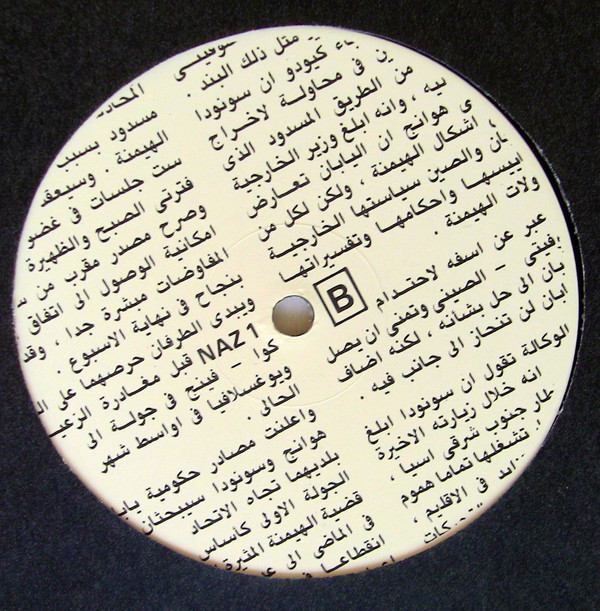 مثل ذلك البند .
كيودو ان سونودا
فى محاولة لاخراج
من الطريق المسدود الذى
بيه ، وانه ابلغ وزير الخارجية
ى هوانج ان اليابان تعارض
، اشكال الهيمنة ، ولكن لكل من
بان والصين سياستها الخارجية
ييسها واحكامها وتفسيراتها
ولات الهيمنة .
عبر عن اسفه لاحتدام
فيتى – الصينى وتمنى ان يصل
بان الى حل بشانه ، لكنه اضاف
ابان لن تنحاز الى جانب فيه .
الوكالة تقول ان سونودا ابلغ
انه خلال زيارته الاخيرة
طار جنوب شرقى اسيا ،
، تشغلها تماما هموم
فى الاقليم ،
المحاد
مسدود بسبب
الهيمنة . وسيعقد
ست جلسات فى غضو
فترتى الصبح والظهيرة
وصرح مصدر مقرب من س
امكانية الوصول الى اتفاق
المفاوضات مبشرة جدا ، وقد
بنجاح فى نهاية الاسبوع .
ويبدى الطرفان حرصهما على ال
قبل مغادرة الزعي
كوا – فينج فى جولة الى
ويوغسلافيا فى اواسط شهر
الحالى .
واعلنت مصادر حكومية يابا
هوانج وسونودا سيبحثان
بلديهما تجاه الاتحاد
الجولة الاولى كأساس
قضية الهيمنة المثيرة
فى الماضى الى
انقطاعها
B
NAZ 1